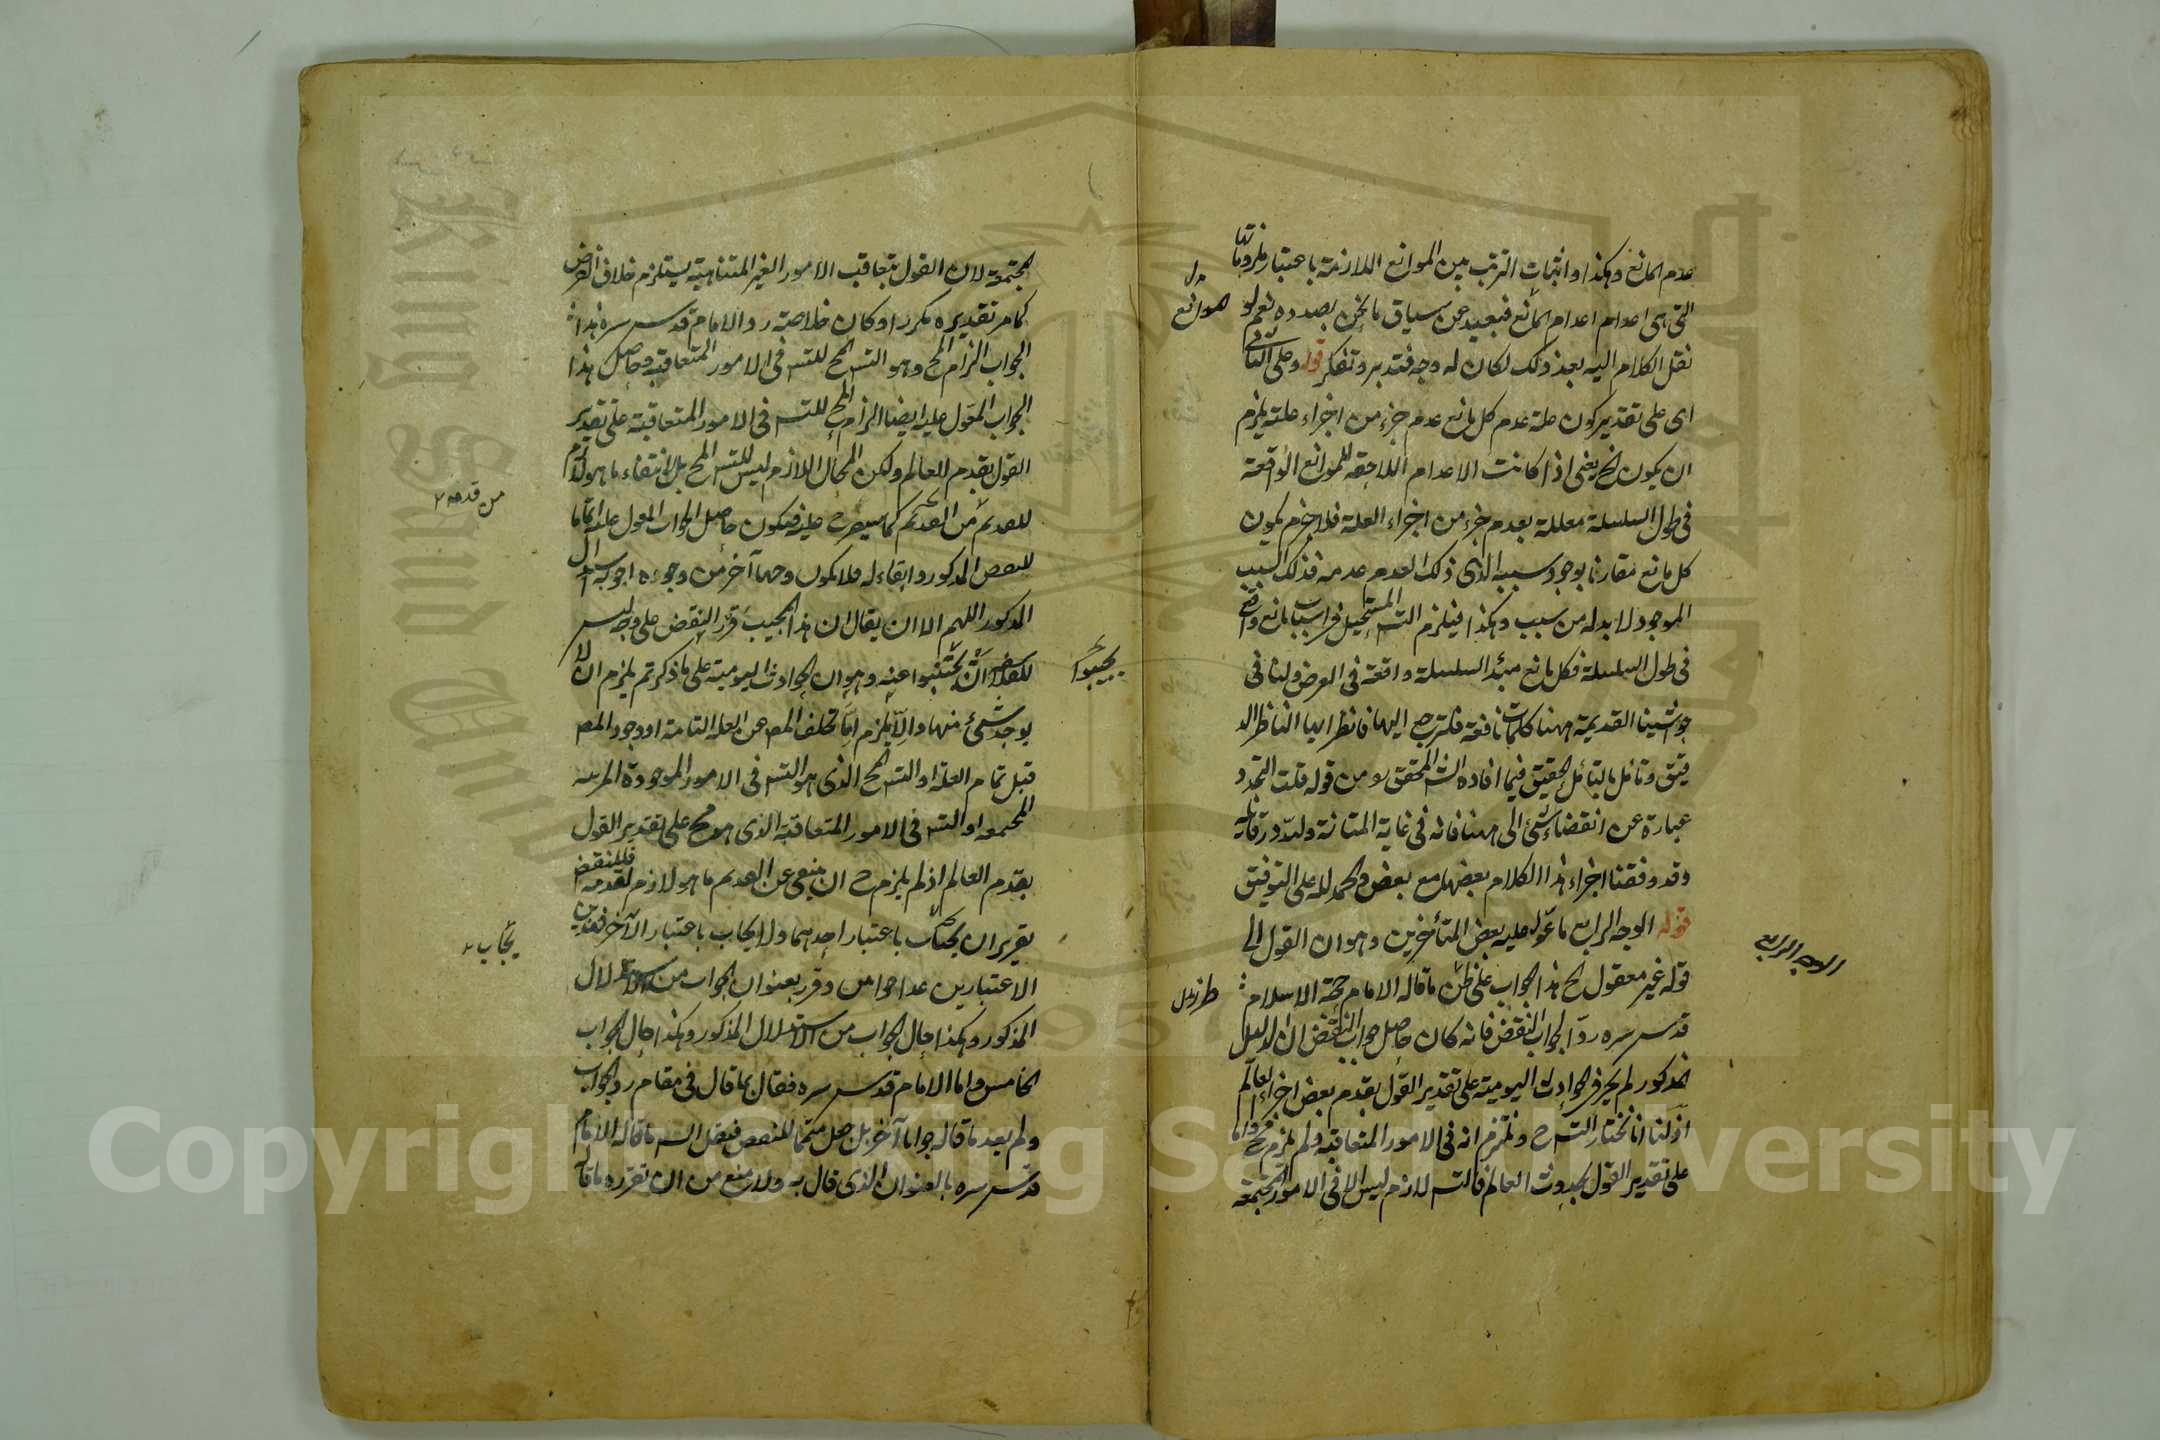 عدم المانع وهكذا واثبات الترتب بين الموانع اللازمة باعتبار طروناتها
التى هى اعدام اعدام المانع فبعيد عن سياق ما نحن بصدده نعم لو
نقل الكلام اليه بعد ذلك لكان له وجه فتدبر وتفكر قوله وعلى الثانى
اى على تقدير كون علة عدم كل مانع عدم جزء من اجزاء علته يلزم
ان يكون الخ يعنى اذا كانت الاعدام اللاحقه للموانع الواقعة
فى طول السلسلة معللة بعدم جزء من اجزاء العلة فلا جرم يكون
كل مانع مقارنا بوجود سببه الذى ذلك العدم عدمه فذلك السبب
الموجود لا بد له من سبب وهكذا فيلزم التسـ المستحيل فى اسباب مانع واقع
فى طول السلسلة فكل مانع مبدأ السلسلة واقعة فى العرض ولنا فى
حواشينا القديمة ههنا كلمات نافعة فلترجع اليها فانظر ايها الناظر الد
قيق وتأمل بالتأمل الحقيق فيما افاده الشـ المحقق من قوله قلت التجدد
عبارة عن انقضاء شئ الى ههنا فانه فى غاية المتانة ولله در قائله
وقد وفقنا اجزاء هذا الكلام بعضها مع بعض والحمد لله على التوفيق
قوله الوجه الرابع ما عول عليه بعض المتأخرين وهو ان القول الى
قوله غير معقول الخ هذا الجواب على ظن ما قاله الامام حجة الاسلام
قدس سره رد الجواب النقض فانه كان حاصل جواب النقض ان الدليل
المذكور لم يجر فى الحوادث اليومية على تقدير القول بقدم بعض اجزاء العالم
اذ لنا ان نختار التسـ ح ونلتزم انه فى الامور المتعاقبة ولم يلزم مح واما
على تقدير القول بحدوث العالم فالتسـ اللازم ليس الا فى الامور المجتمعة
الموانع
الوجه الرابع
المجتمعة لان القول بتعاقب الامور الغير المتناهية يستلزم خلاف الفرض
كما مر تقديره مكررا وكان خلاصة رد الامام قدس سره هذا
الجواب الزام المح وهو التسـ المح للتسـ فى الامور المتعاقبة وحاصل هذا
الجواب المعول عليه ايضا الزام المح للتسـ فى الامور المتعاقبة على تقدير
القول بقدم العالم ولكن المحال اللازم ليس للتسـ المح بل انتفاء ما هو لازم
للقديم من القديم كما سيصرح عليه فيكون حاصل الجواب المعول عليه اتماما
للنقض المذكور وابقاء له فلا يكون وجها آخر من وجوه اجوبة
المذكور اللهم الا ان يقال ان هذا المجيب قرر النقض على وجه ليس
للفلاسفة ان يجتنبوا عنه وهو ان الحوادث اليومية على ما ذكرتم يلزم ان لا
يوجد شئ منها والا يلزم اما تخلف المعـ عن العلة التامة او وجود المعـ
قبل تمام العلة او التسـ المح الذى هو التسـ فى الامور الموجودة المرتبة
المجتمعة او التسـ فى الامور المتعاقبة الذى هو مح على تقدير القول
بقدم العالم اذ لم يلزم ح ان ينفى عن القديم ما هو لازم لقدمه فللنقض
تقرير ان يجاب باعتبار احدهما ولا يجاب باعتبار الآخر فهذين
الاعتبارين عد اجوابين وقرر بعنوان الجواب من الاستدلال
المذكور وهكذا حال الجواب من الاستدلال المذكور وهكذا حال الجواب
الخامس واما الامام قدس سره فقال بما قال فى مقام رد الجواب
ولم يعد ما قاله جوابا آخر بل جعل متمما للنقض فيقل الشـ ما قاله الامام
قدس سره بالعنوان الذى قال به ولا منع من ان تقرره ما قاله
من قدمه
يجيبوا
يجاب
Copyright © King Saud University
King Saud University
1957